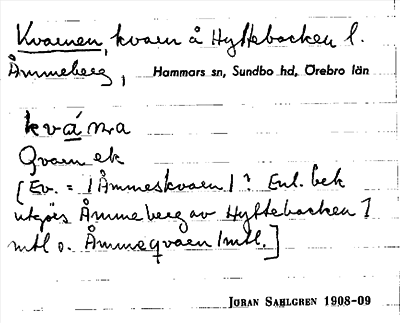 Kvarnen, kvarn å Hyttebacken l.
Åmmeberg, Hammars sn, Sundbo hd, Örebro län
kvánra
Qvarn ek
[Ev. = /Åmmeskvarn/? Enl. bek
utgörs Åmmeberg av Hyttebacken 7
mtl o. Åmmeqvarn 1 mtl.]
JÖRAN SAHLGREN 1908-09